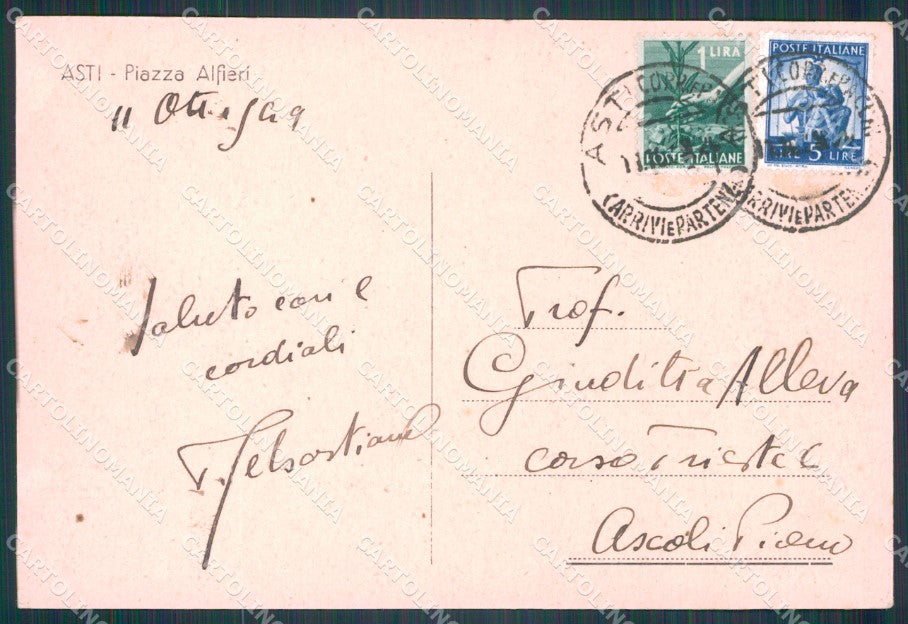 ASTI - Piazza Alfieri
11 Ott.
1 LIRA
POSTE ITALIANE
POSTE ITALIANE
5 LIRE
ASTI CORR. E PACCHI
(ARRIVI E PARTENZE)
(ARRIVI E PARTENZE)
Saluto cari e
cordiali
Prof.
Giuditta Alleva
corso Trieste
Ascoli Piceno
CARTOLINOMANIA